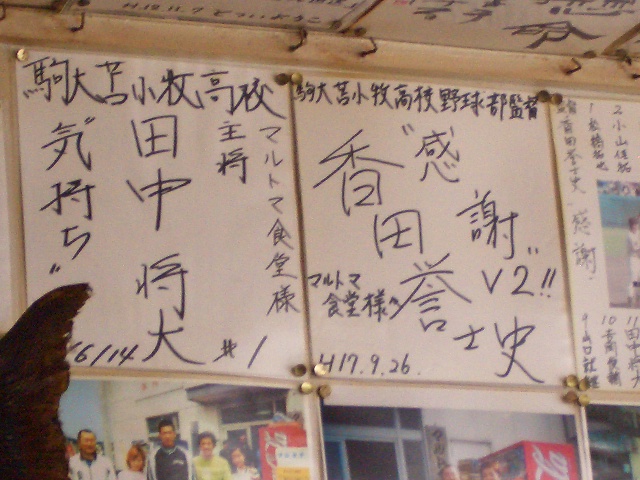 駒大苫小牧高校
主将
田中将大
"気持ち"
マルトマ食堂様
6/14
#1
駒大苫小牧高校野球部監督
"感謝"
V2!!
香田誉士史
マルトマ
食堂様へ
H17.9.26.
香田誉士史
感謝
1
2 小山佳祐
9
10 吉岡俊輔
11 田中将大